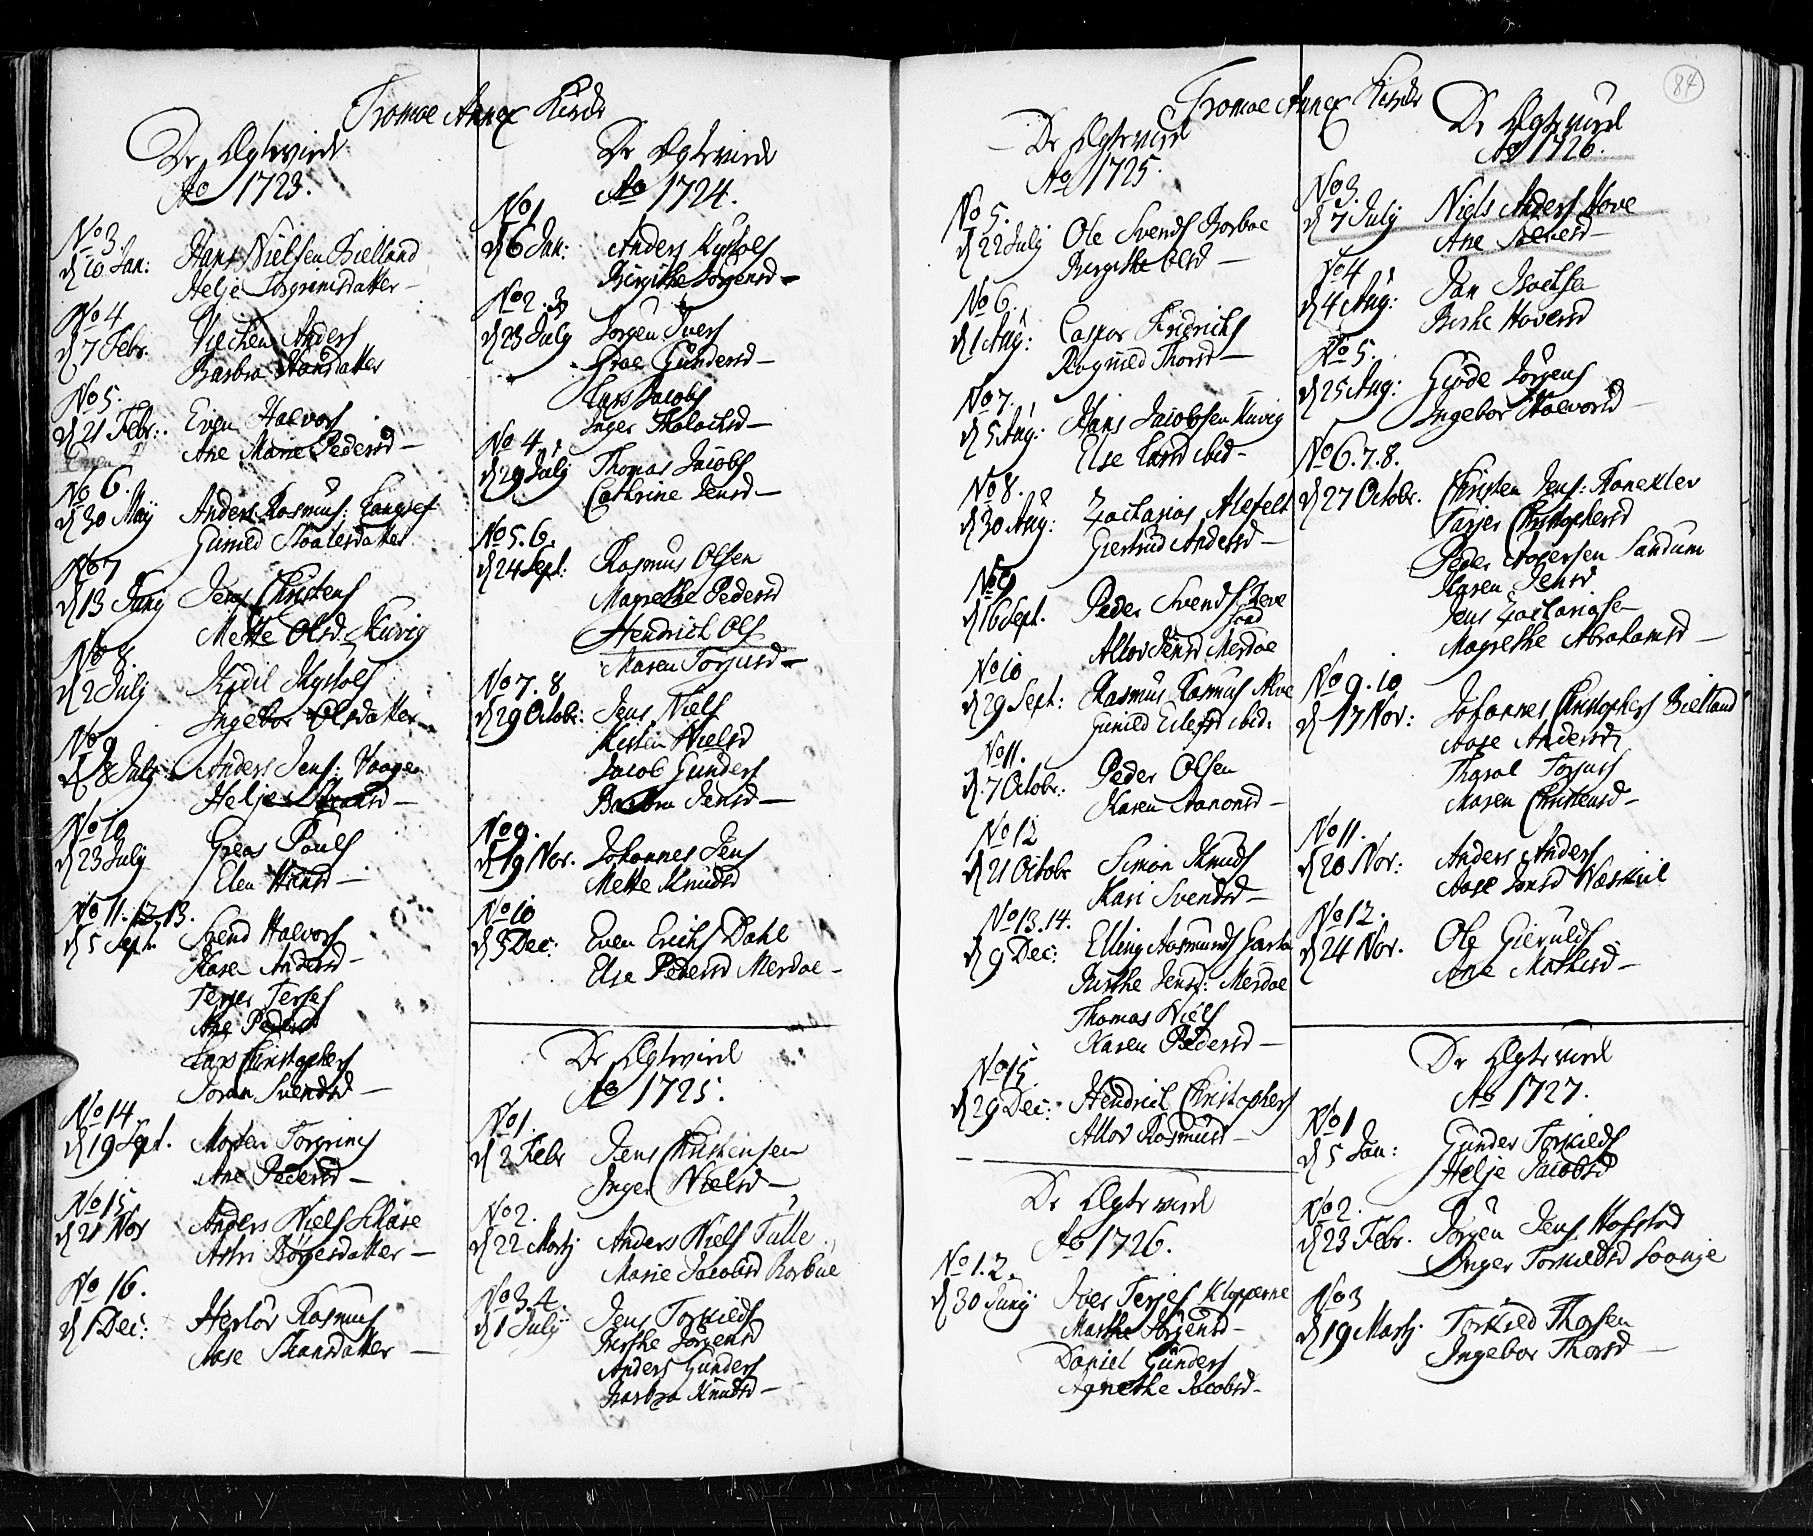 Tromoe Annex Kirch
De Ægtevied
Ao 1723.
No 3.
d 10 Jan: Hans Nielsen Bielland
Helje Torgrimsdatter –
No 4
d 7 Febr: Anders
Barbra Hansdatter
No 5.
d 21 Febr: Even Halvors
Ane Marie Pedersd –
No 6.
d 30 Maij Anders Rasmus:
Gunild
No 7
d 13 Junij Jens Christens
Mette Olsd
No 8.
d 2 Julij Kidil
Ingebor Olsdatter –
No 9
d 8 Julij Anders Jens: Vaagen
Helje –
No 10
d 23 Julij Greas Pouls
Elen Hansd –
No 11. 12. 13.
d 5 Sept. Svend Halvors
Karen Andersd –
Terjer Terjes
Ane Pedersd
Lars Christophers
Joran Svendsd –
No 14
d 19 Sept. Morten Torgrims
Ane Pedersd –
No 15
d 21 Nov Anders Niels
Astri Börgesdatter –
No 16.
d 1 Dec: Herlov Rasmus
Aase –
De Ægtevied
Ao 1724.
No 1
d 6 Jan: Anders
Birgithe Jorgensd –
No 2. 3
d 23 July Jorgen Ivers
Groe Gundersd –
Lars Jacobs
Inger –
No 4
d 29 Julij Thomas Jacobs
Cathrine Jensd –
No 5. 6.
d 24 Sept: Rasmus Olsen
Magrethe Pedersd
Hendrich Ols
Maren Torjusd –
No 7. 8
d 29 Octobr: Jens Niels
Kirstin Nielsd
Jacob Gunders
Barbra Jensd –
No 9.
d 19 Nov. Johannes Jens
Mette Knudsd
No 10
d 3 Dec: Even Erichs Dahl
Else Pedersd Merdoe –
De Ægtevied
Ao 1725.
No 1.
d 2 Febr Jens Christensen
Inger Nielsd –
No 2.
d 22 Martij Anders Niels
Marie Jacobsd
No 3. 4.
d 1 Julij Jens Torkilds
Birthe Jörgensd
Anders Gunders
Barbra Knudsd –
84
Tromoe Annex Kirch
De Ægtevied
Ao 1725.
No 5.
d 22 Julij Ole Svends
Birgithe Olsd –
No 6.
d 1 Aug: Caspar Fridrichs
Ragnild Thorsd –
No 7.
d 5 Aug: Hans Jacobsen
Else Larsd ibid –
No 8.
d 30 Aug: Zacharias Alefelt
Giertrud Andersd –
No 9
d 16 Sept. Peder Svends
Allov Jensd Merdoe
No 10
d 29 Sept: Rasmus Rasmus
Gunild ibid:
No 11.
d 7 Octobr: Peder Olsen
Karen Aanonsd –
No 12
d 21 Octobr Simon Knuds
Kari Svendsd –
No 13. 14.
d 9 Dec: Elling Aasmunds
Birthe Jensd: Merdoe
Thomas Niels
Karen Pedersd –
No 15
d 29 Dec: Hendrich Christophers
Allov Rasmusd –
De Ægtevied
Ao 1726.
No 1. 2.
d 30 Junij Joer Terjes Klopperne
Marthe Jörgensd –
Daniel Gunders
Agnethe Jacobsd –
De Ægtevied
Ao 1726.
No 3.
d 7 July Niels Anders Hove
Ane –
No 4
d 4 Aug: Jan
Birthe
No 5.
d 25 Aug: Giöde Jörgens
Ingebor Halvorsd –
No 6. 7. 8.
d 27 Octobr. Christen Jens:
Tarjer Christophersd
Peder Sandum
Karen Jensd
Jens Zachariasen
Magrethe Abrahamsd –
No 9. 10
d 17 Nov: Johannes Christophers Bielland
Aase Andersd
Tharal Torjuss
Maren Christensd –
No 11.
d 20 Nov: Anders Anders
Aase Jonsd
No 12.
d 24 Nov. Ole Gierulds
Ane Mathisd –
De Ægtevied
Ao 1727.
No 1
d 5 Jan: Gunder Torkilds
Helje Jacobsd
No 2.
d 23 Febr. Jörgen Jens Hofstad
Inger Torkildsd
No 3
d 19 Martij Torkild Thorsen
Ingebor Thorsd –